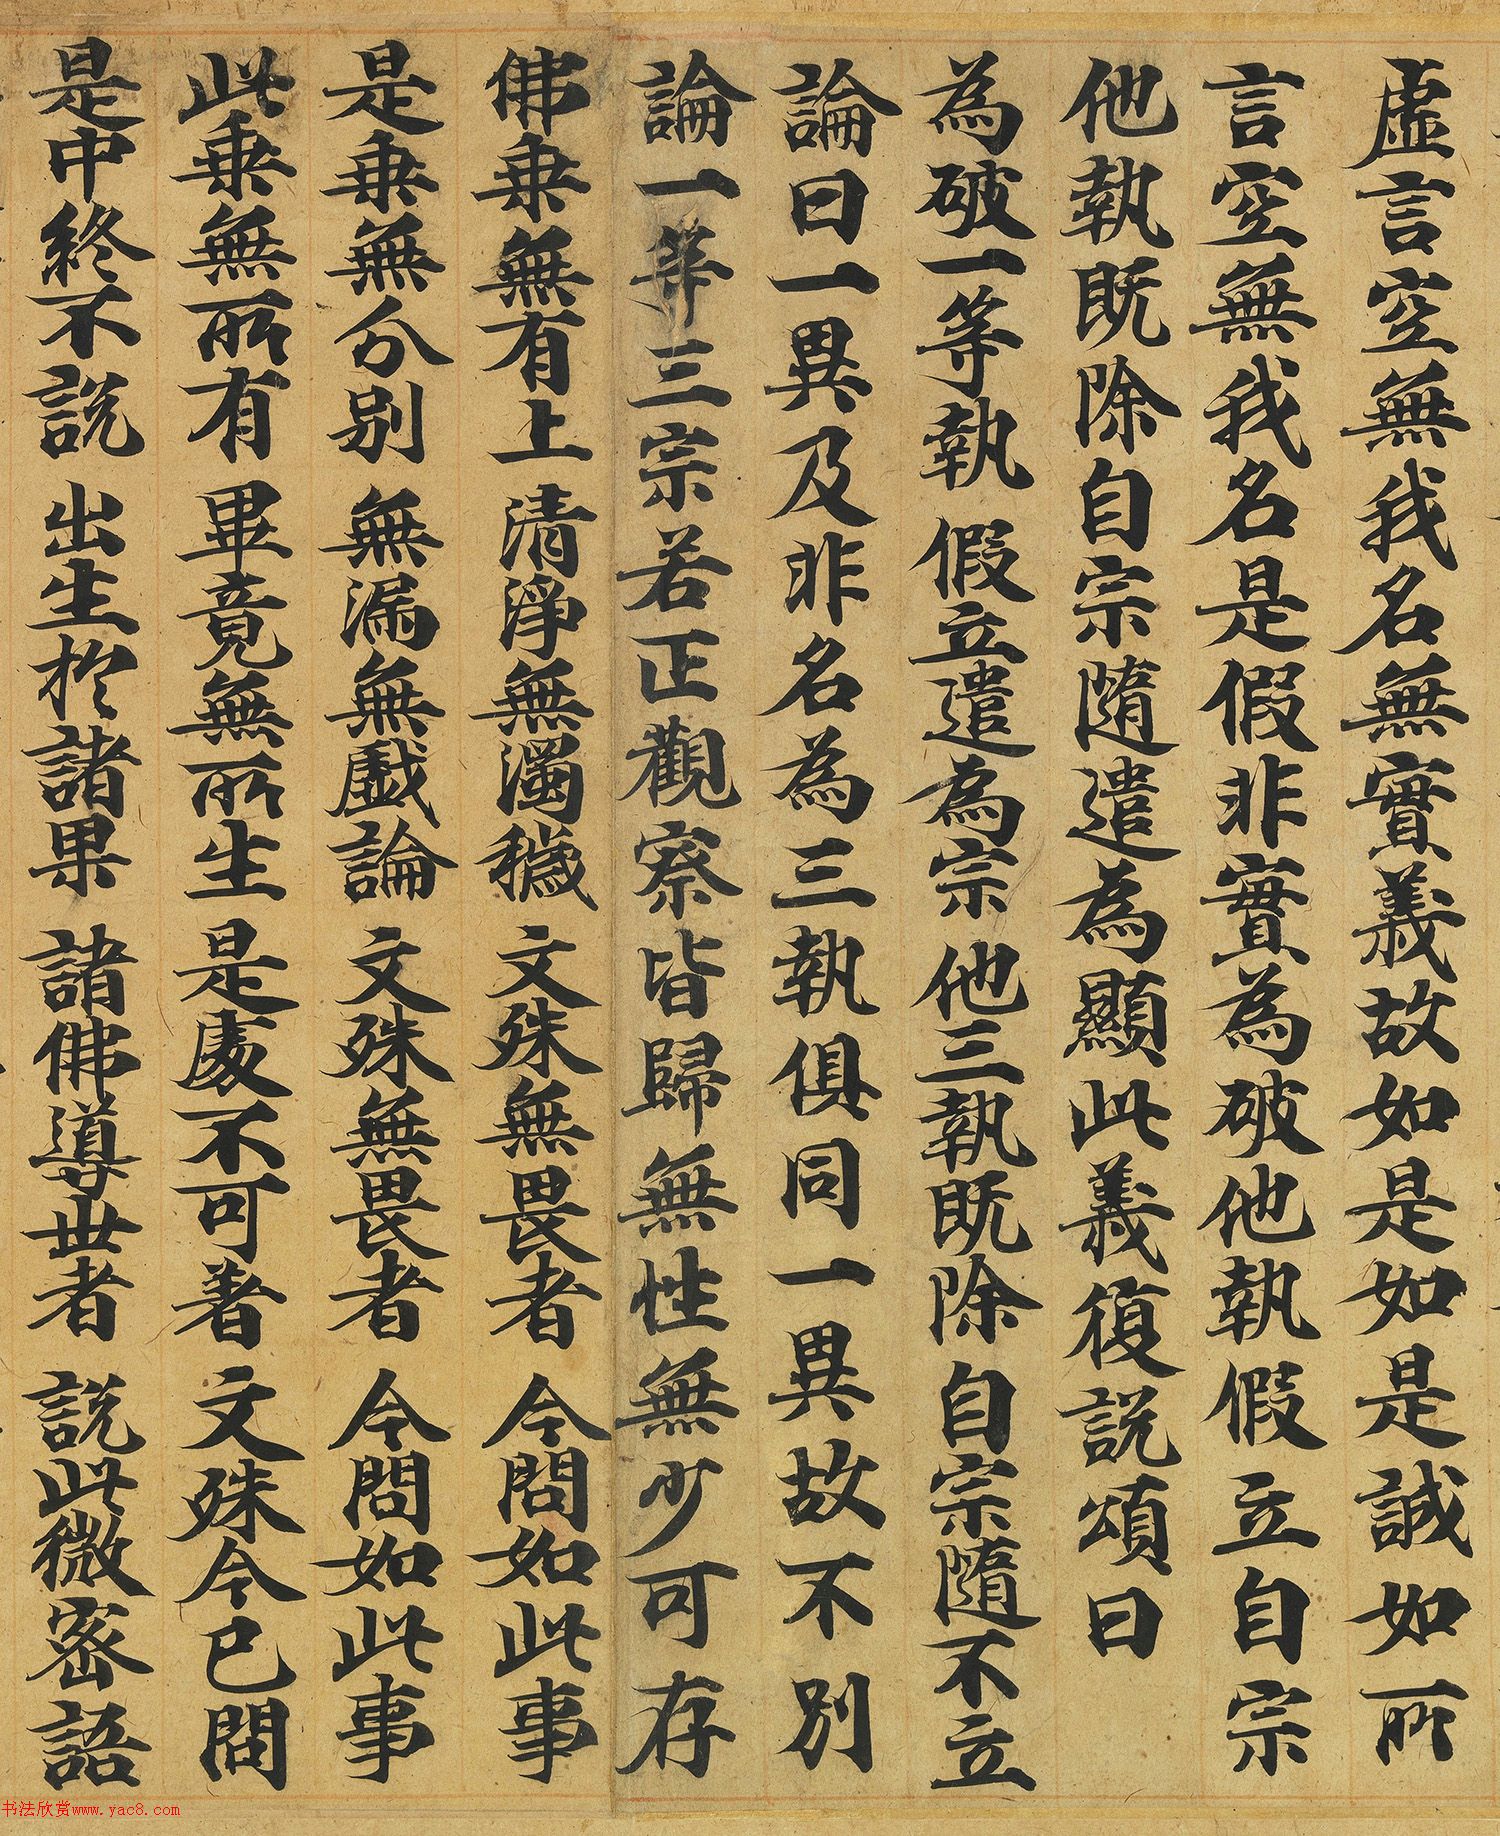 虛言空無我名無實義故如是如是誠如所
言空無我名是假非實為破他執假立自宗
他執既除自宗隨遣為顯此義復說頌曰
為破一等執 假立遣為宗 他三執既除 自宗隨不立
論曰一異及非名為三執俱同一異故不別
論一等三宗若正觀察皆歸無性無少可存
佛乘無有上 清淨無濁穢 文殊無畏者 今問如此事
是乘無分別 無漏無戲論 文殊無畏者 今問如此事
此乘無所有 畢竟無所生 是處不可著 文殊今已問
是中終不說 出生於諸果 諸佛導世者 說此微密語
书法欣赏www.yac8.com